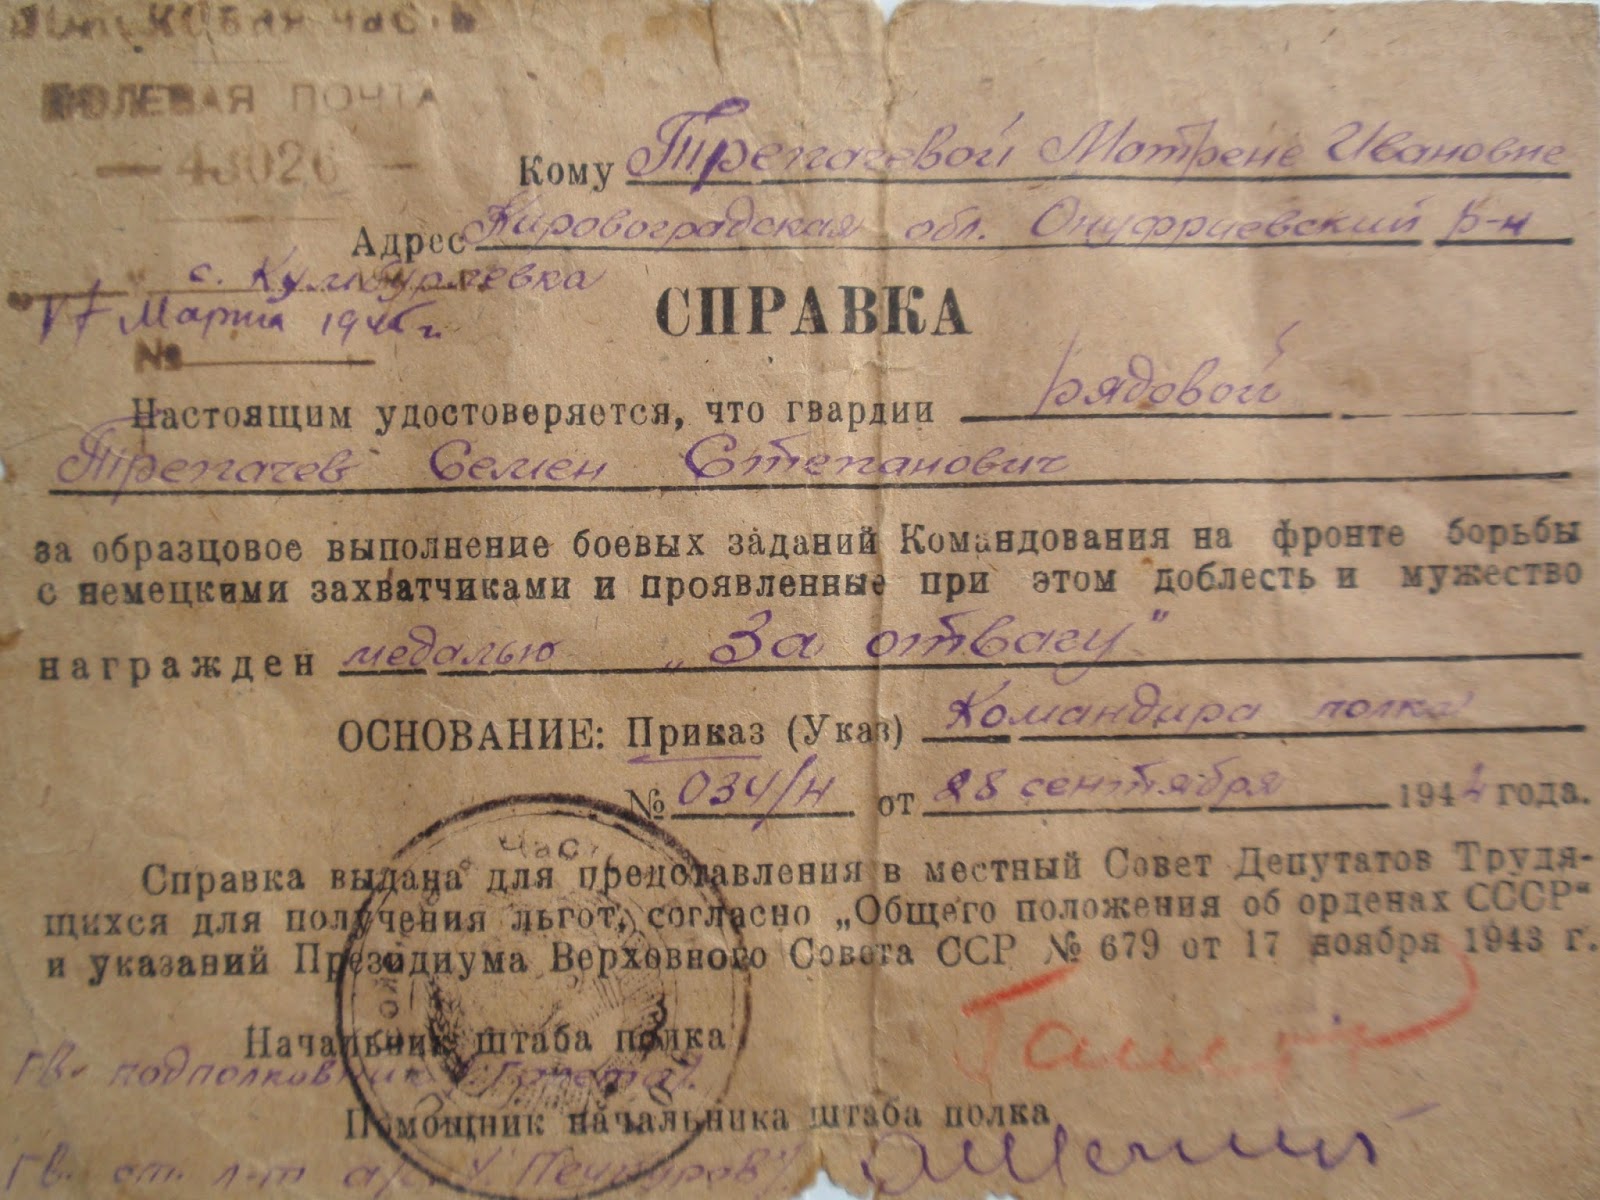 Войсковая часть
ПОЛЕВАЯ ПОЧТА
— 43026 —
Кому Трепачевой Мотрене Ивановне
Адрес Кировоградская обл. Онуфриевский р-н
с. Кумбурлевка
17 Марта 1945 г.
№
СПРАВКА
Настоящим удостоверяется, что гвардии рядовой
Трепачев Семен Степанович
за образцовое выполнение боевых заданий Командования на фронте борьбы
с немецкими захватчиками и проявленные при этом доблесть и мужество
награжден медалью „За отвагу"
ОСНОВАНИЕ: Приказ (Указ) Командира полка
№ 034/н от 28 сентября 1944 года.
Справка выдана для представления в местный Совет Депутатов Трудя-
щихся для получения льгот, согласно „Общего положения об орденах СССР"
и указаний Президиума Верховного Совета ССР № 679 от 17 ноября 1943 г.
Начальник штаба полка
Гв. подполковник
Помощник начальника штаба полка
Гв. ст. л-т а/с